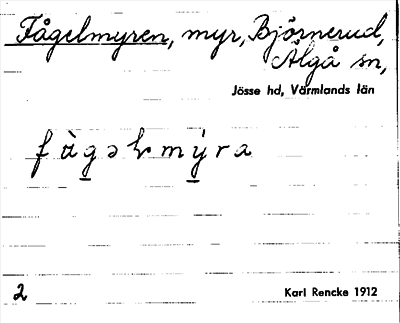 Fågelmyren, myr, Björnerud,
Älgå sn,
Jösse hd, Värmlands län
2
Karl Rencke 1912